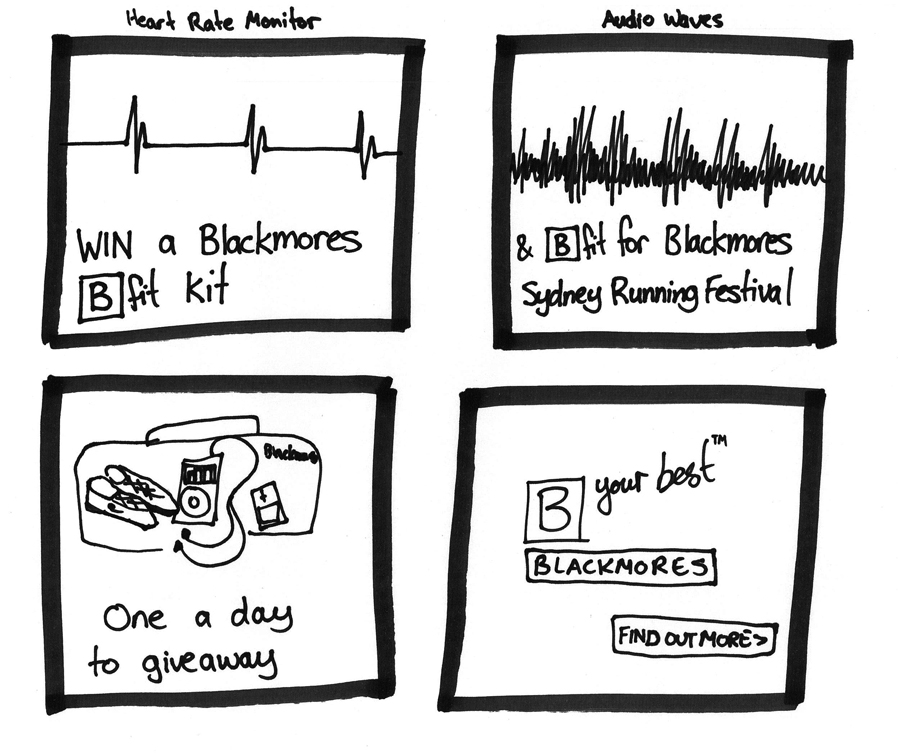 Heart Rate Monitor
WIN a Blackmores
B fit Kit
Audio Waves
& B fit for Blackmores
Sydney Running Festival
Blackmores
One a day
to giveaway
B your best™
BLACKMORES
FIND OUT MORE >